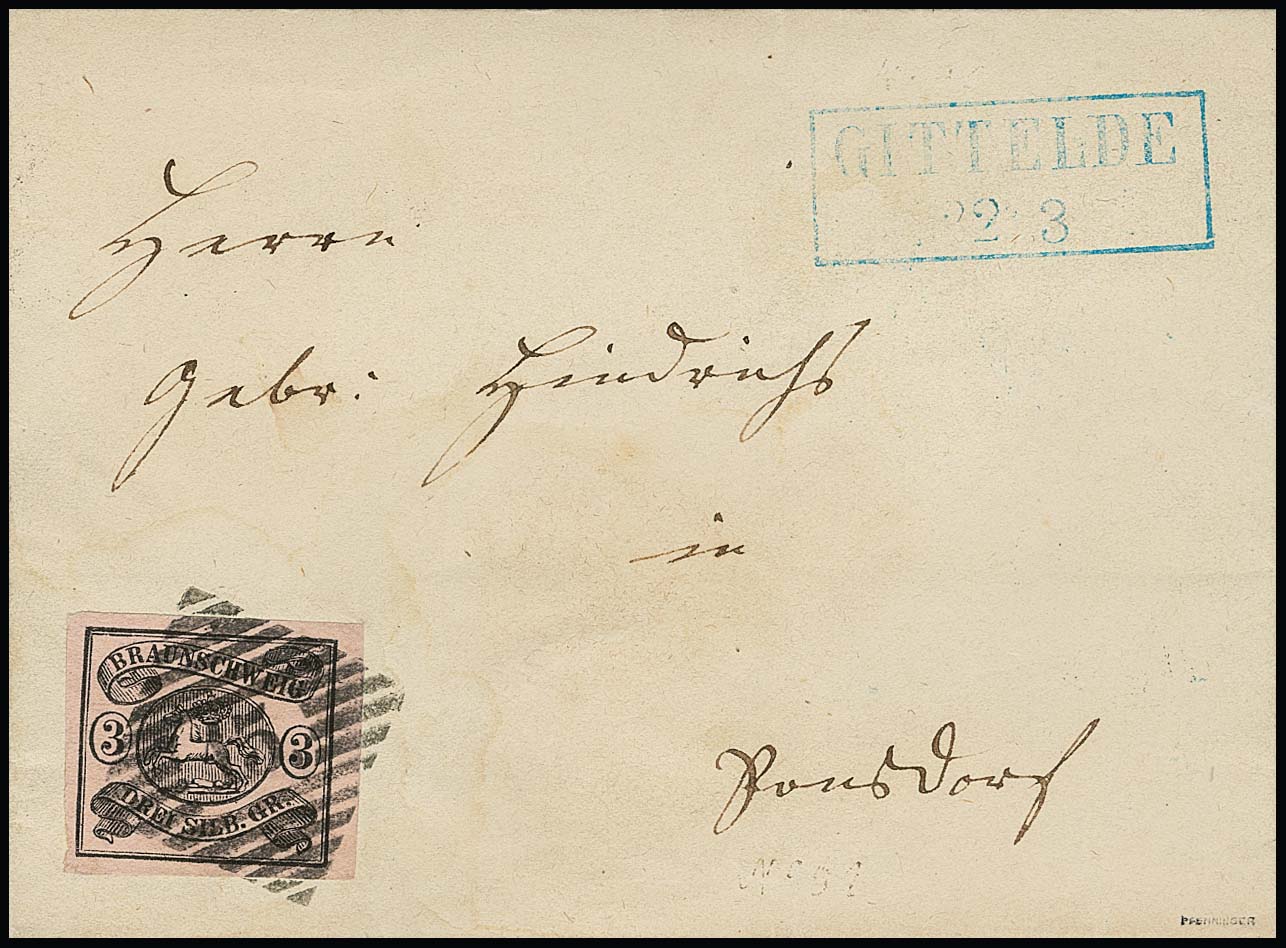 GITTELDE
22 3
Herrn
Gebr: Hindrichs
in
Ronsdorf
BRAUNSCHWEIG
3 3
DREI SILB. GR.
PFENNINGER